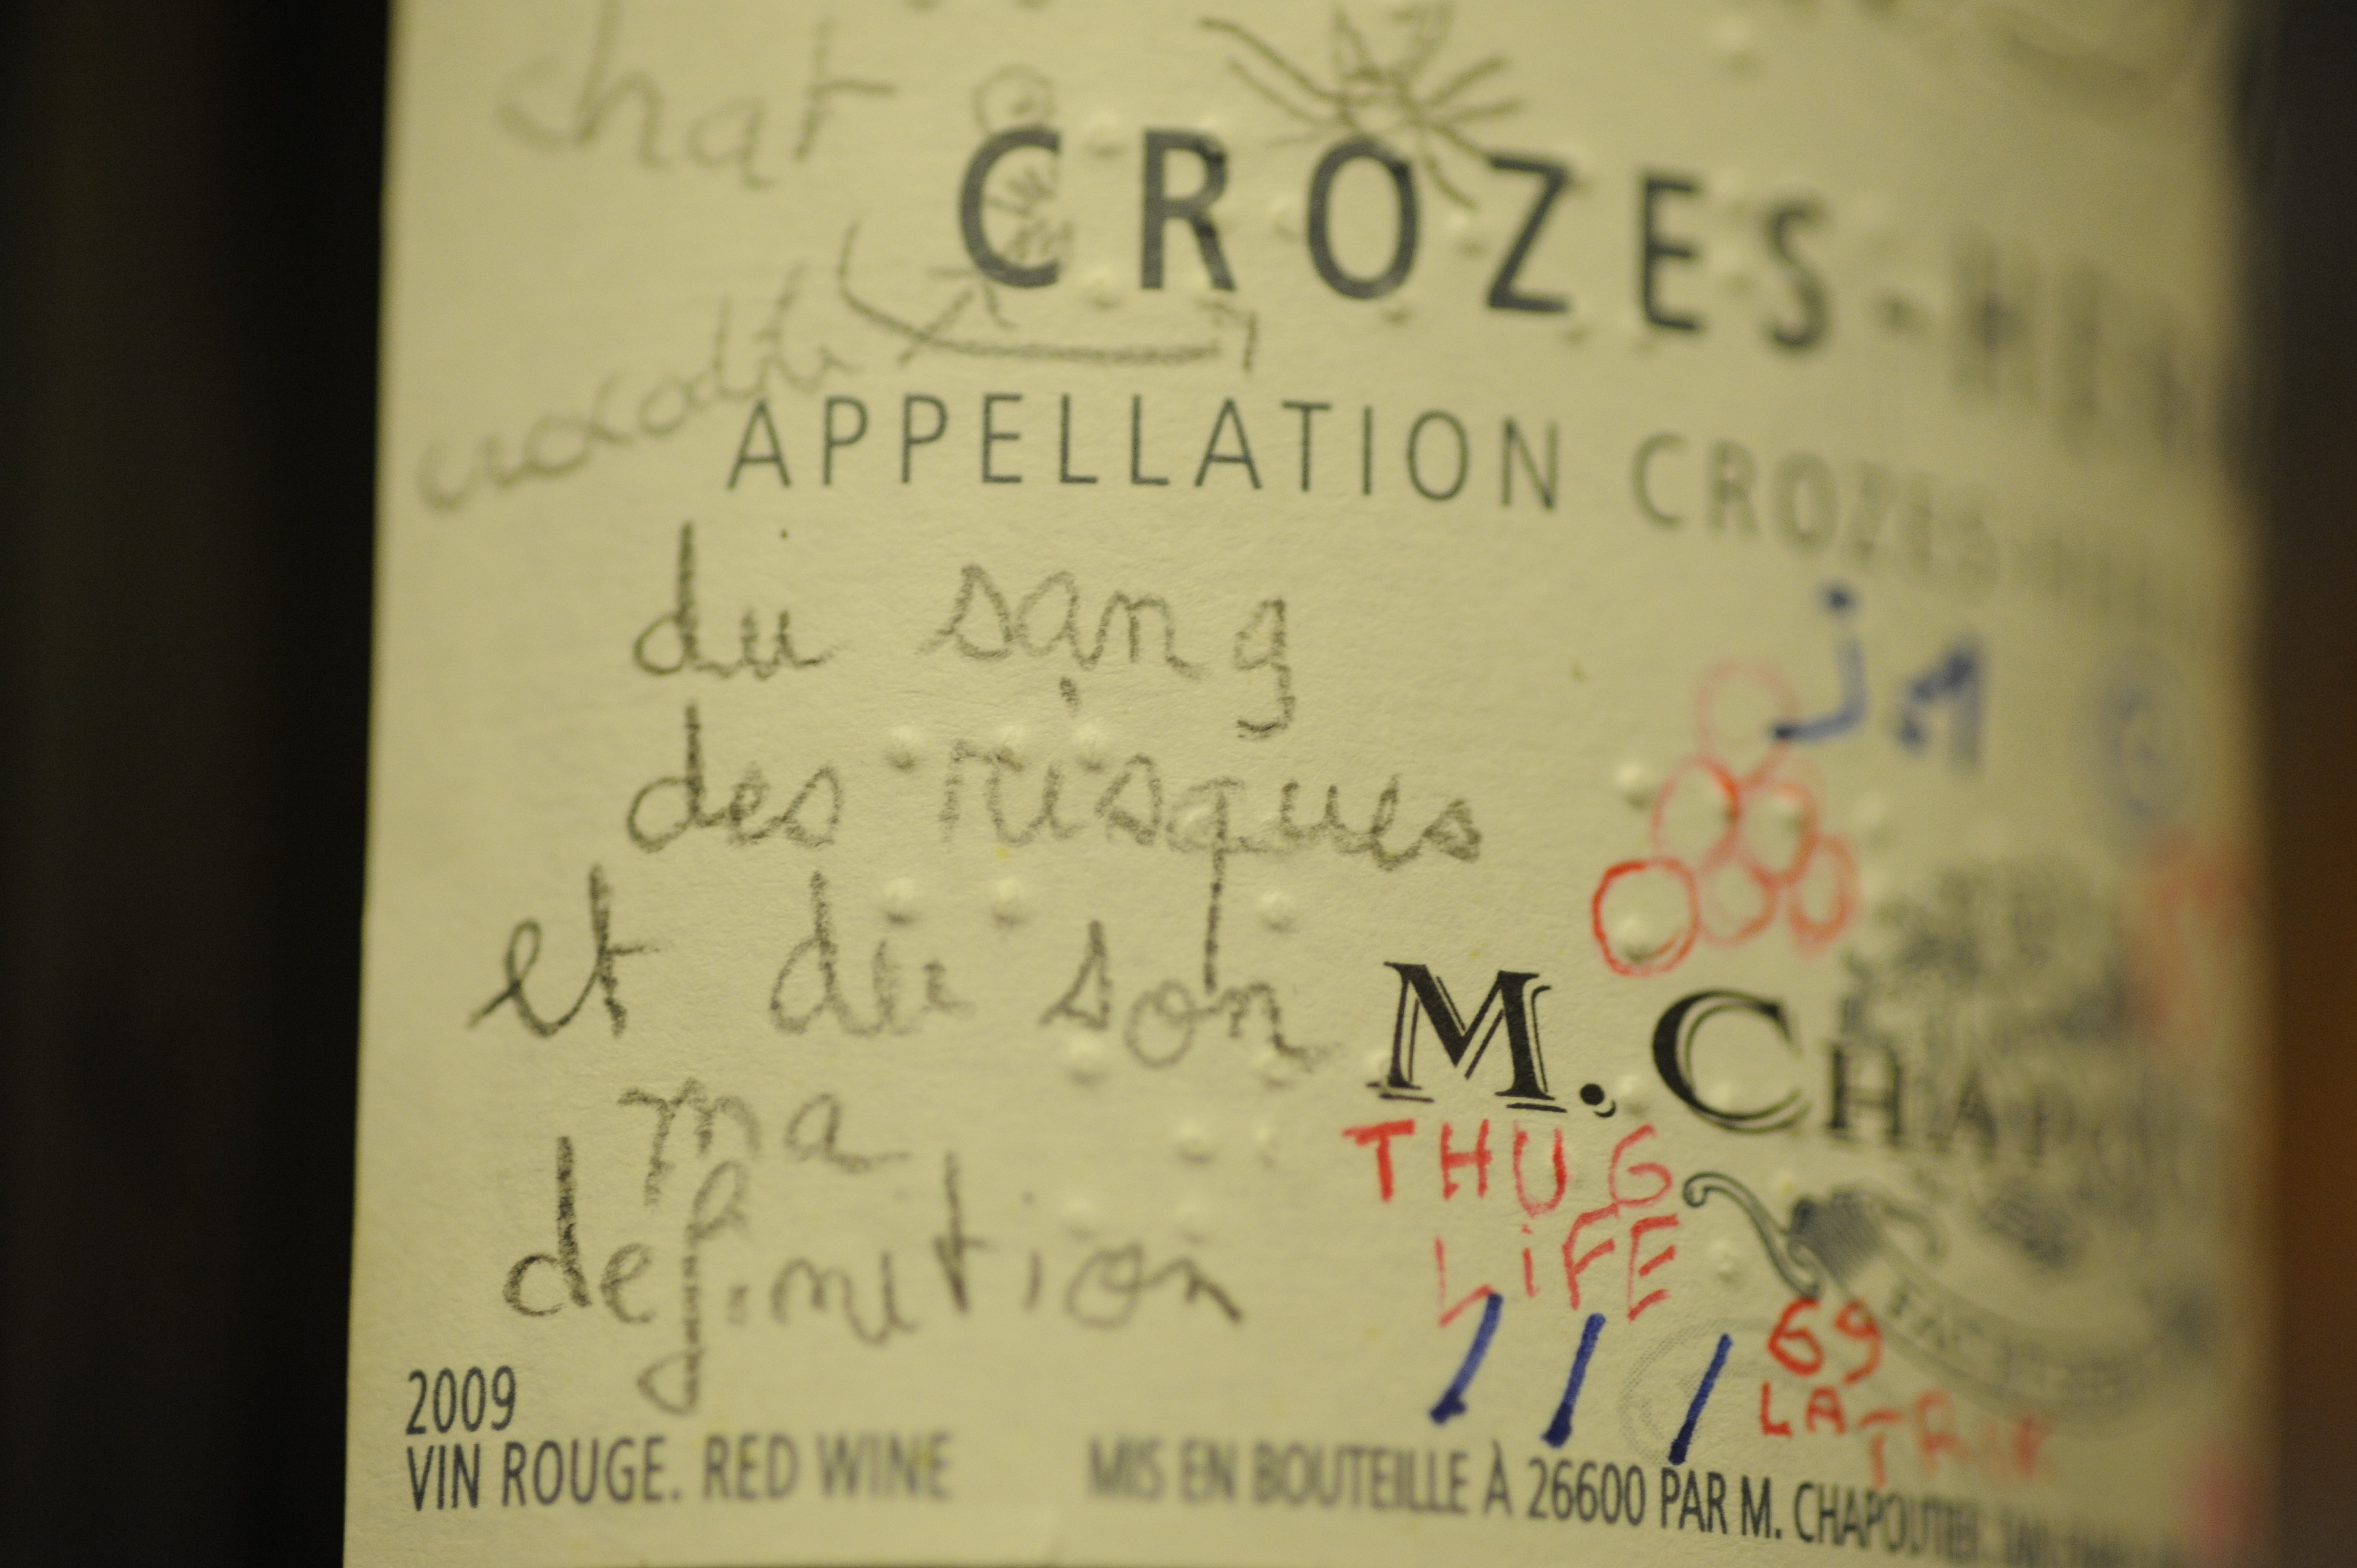 chat
CROZES-
crocodile
APPELLATION CROZES
du sang
des risques
et du son
ma
definition
jM
M. CHAPO
THUG
LiFE
69
LA TRIK
2009
VIN ROUGE. RED WINE
MIS EN BOUTEILLE À 26600 PAR M. CHAPOUTIER